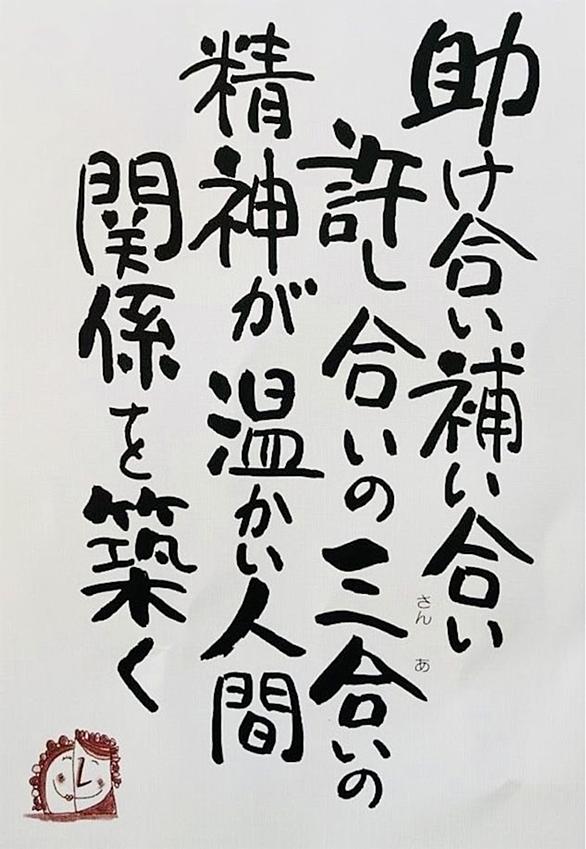 助け合い補い合い
許し合いの三合いの
さん あ
精神が温かい人間
関係を築く